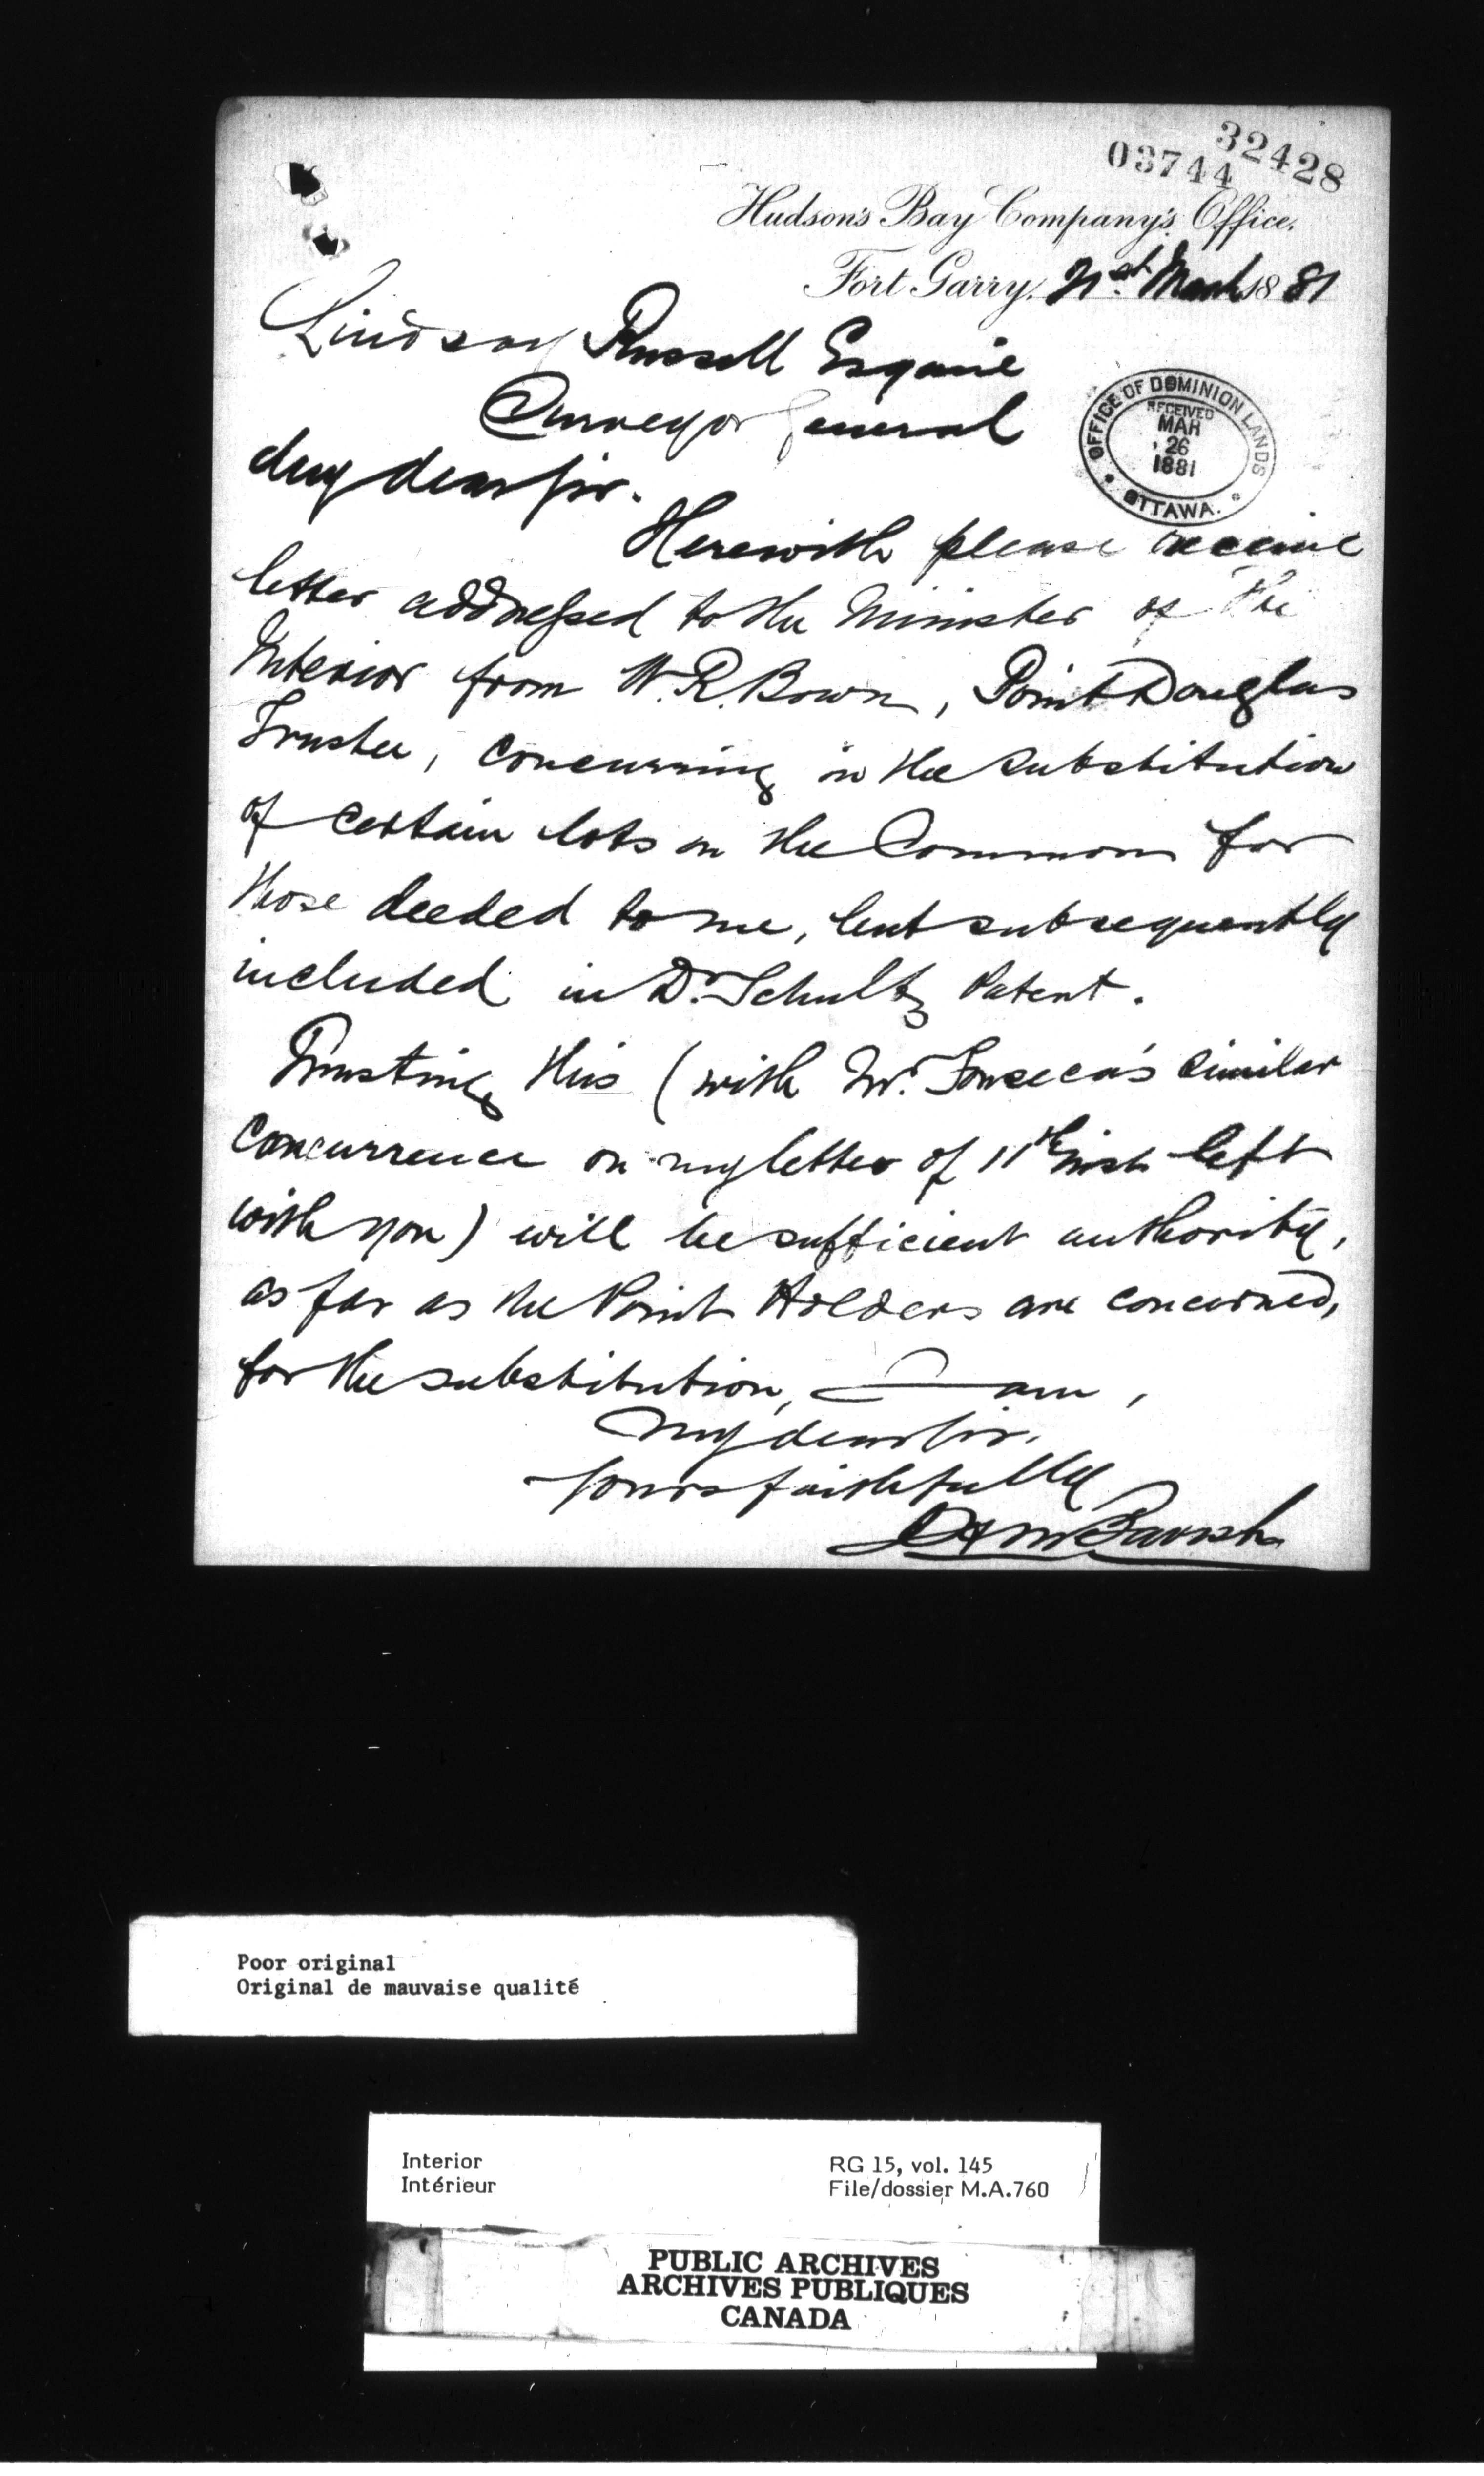 32428
03744
Hudson's Bay Company's Office.
Fort Garry, 21st March 1881
Lindsay Russell Esquire
Surveyor General
OFFICE OF DOMINION LANDS
RECEIVED
MAR
26
1881
OTTAWA.
My dear Sir.
Herewith please receive
letter addressed to the Minister of the
Interior from W. R. Bown, Point Douglas
Trustee, concurring in the substitution
of certain lots on the Common for
those deeded to me, but subsequently
included in Dr. Schultz Patent.
Trusting this (with Mr. Fonseca's similar
concurrence on my letter of 11th inst left
with you) will be sufficient authority,
as far as the Point Holders are concerned,
for the substitution, I am,
My dear Sir.
Yours faithfully
Poor original
Original de mauvaise qualité
Interior
Intérieur
RG 15, vol. 145
File/dossier M.A.760
PUBLIC ARCHIVES
ARCHIVES PUBLIQUES
CANADA